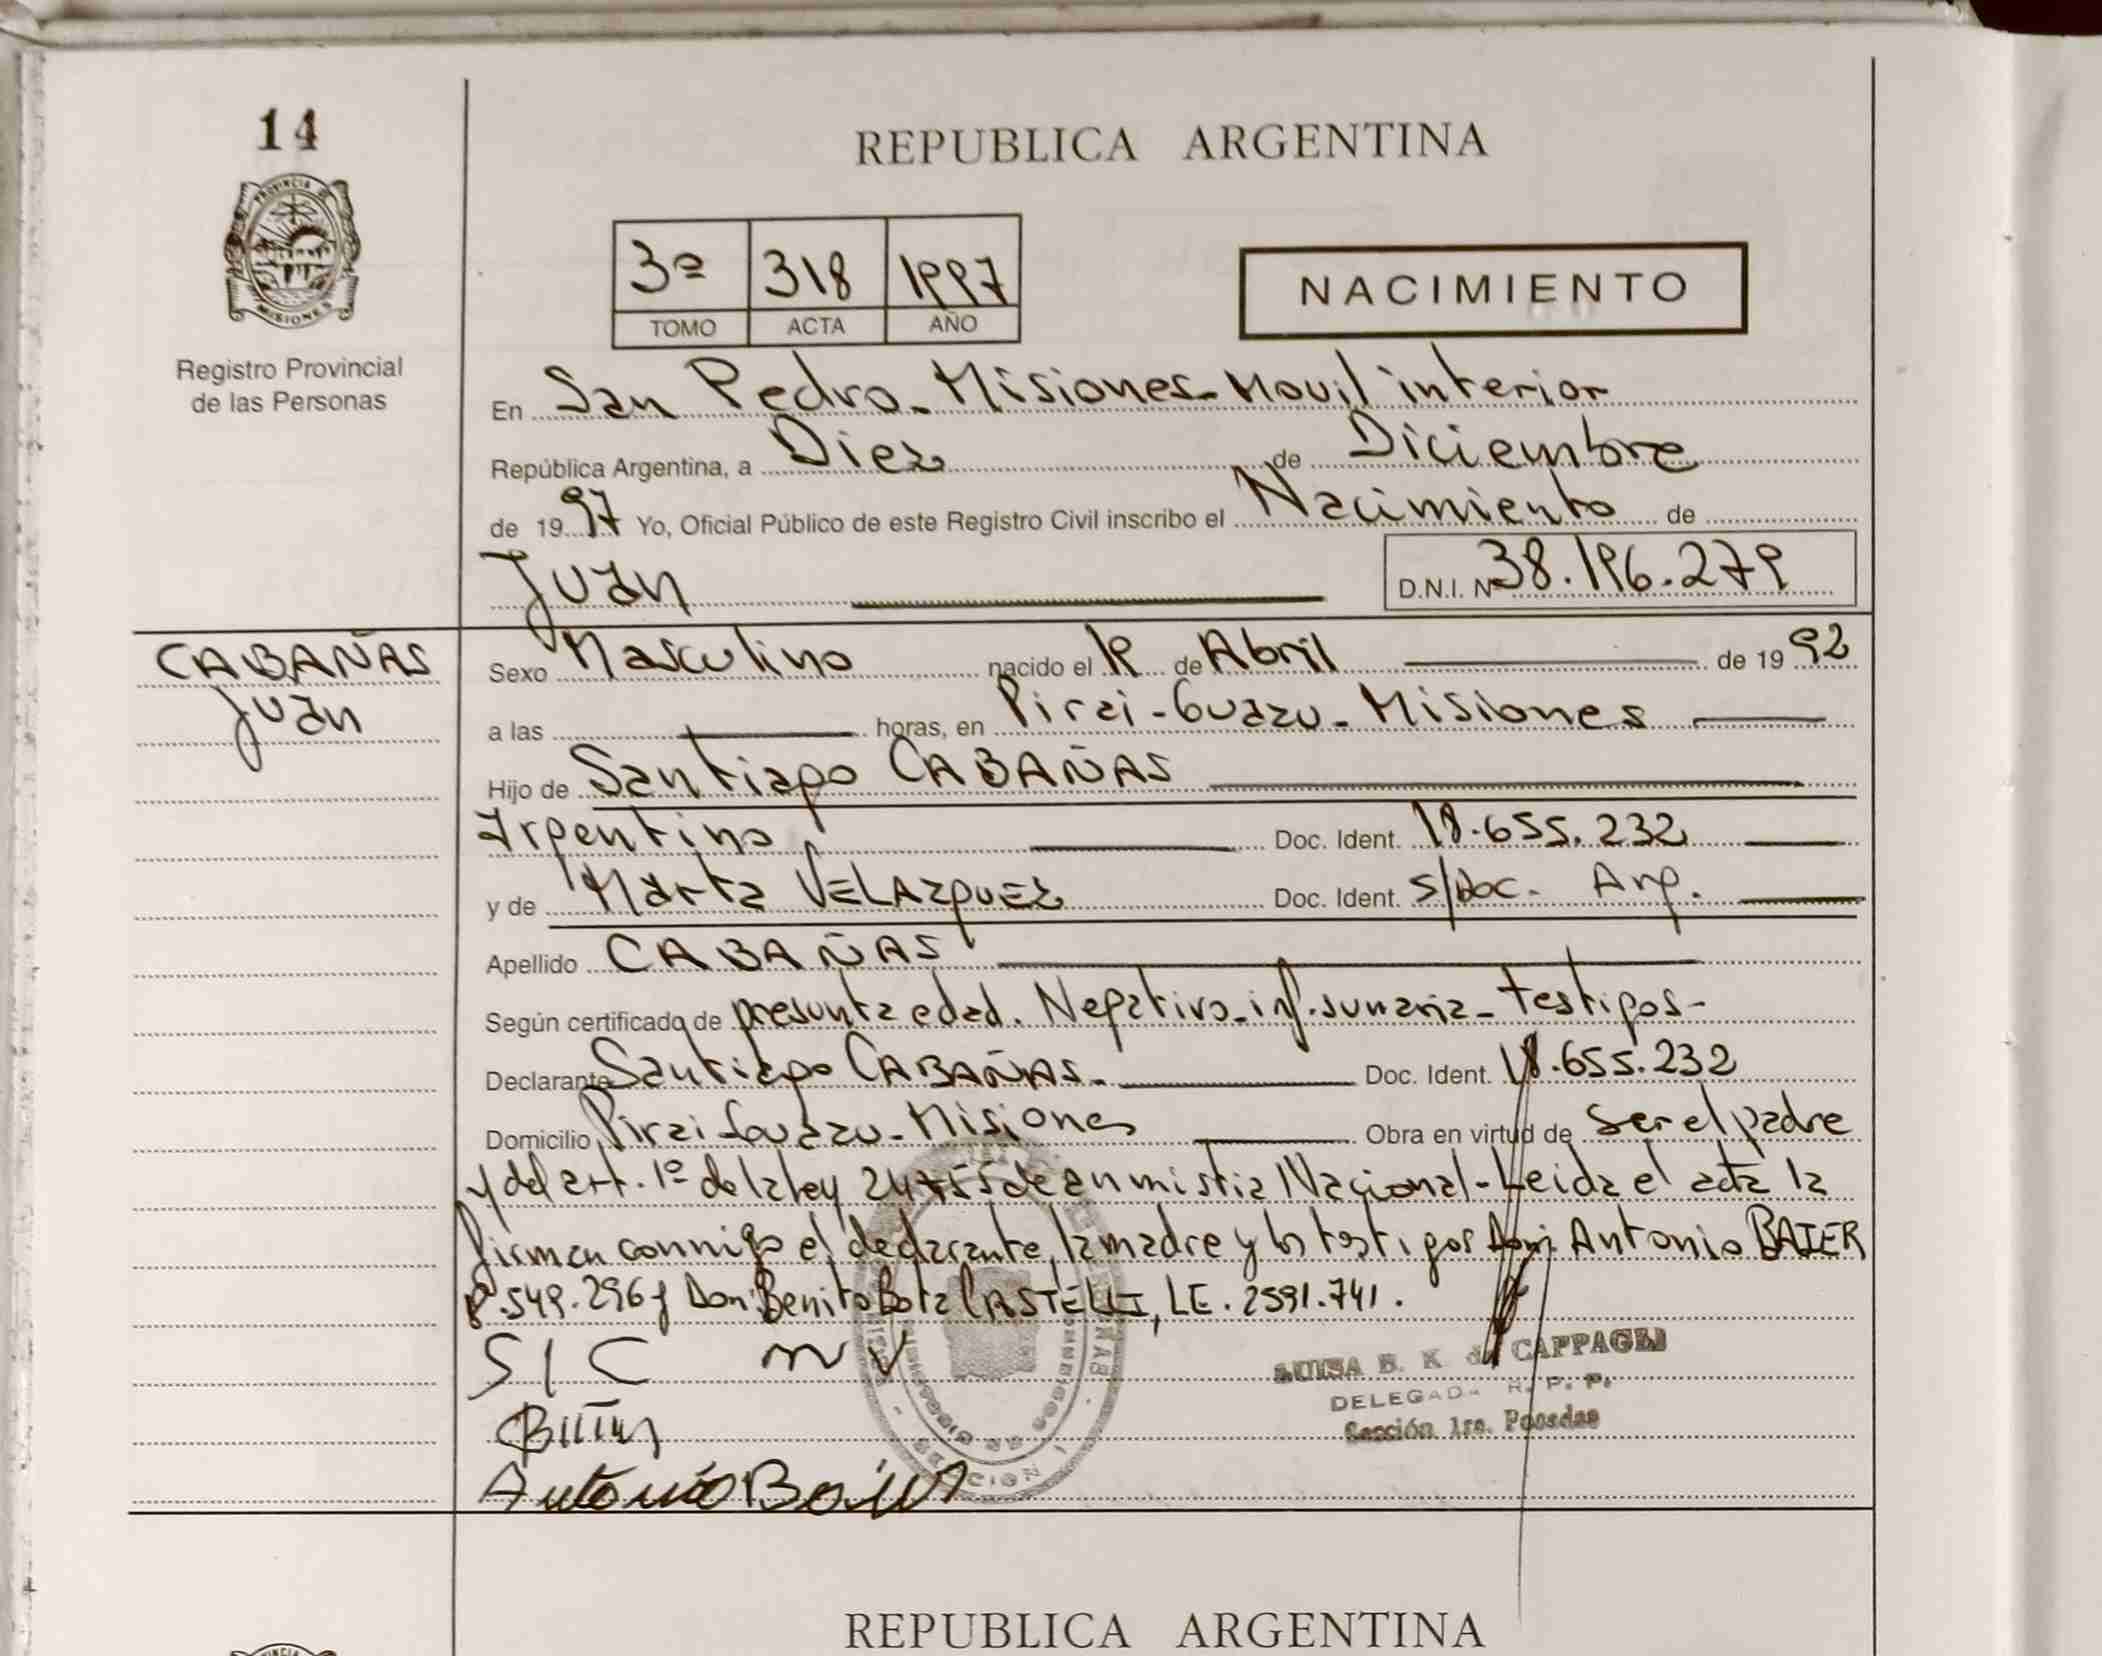 14
REPUBLICA ARGENTINA
PROVINCIA DE
MISIONES
Registro Provincial
de las Personas
3º 318 1997
TOMO ACTA AÑO
NACIMIENTO
En San Pedro - Misiones - Movil interior
República Argentina, a Diez de Diciembre
de 1997 Yo, Oficial Público de este Registro Civil inscribo el Nacimiento de
Juan D.N.I. Nº 38.196.279
CABAÑAS
Juan
Sexo Masculino nacido el 19 de Abril de 1992
a las horas, en Pirai-Guazu - Misiones
Hijo de Santiago CABAÑAS
Argentino Doc. Ident. 18.655.232
y de Marta VELAZQUEZ Doc. Ident. S/Doc. Arg.
Apellido CABAÑAS
Según certificado de presunta edad. Negativo - inf. sumaria - testigos -
Declarante Santiago CABAÑAS - Doc. Ident. 18.655.232
Domicilio Pirai Guazu - Misiones Obra en virtud de ser el padre
y del art. 1º de la Ley 24755 de anmistia Nacional - Leida el acta la
firman conmigo el declarante, la madre y los testigos Don Antonio BAIER
8.549.296 y Don Benito Bota CASTELLI, LE. 2591.741.
S I C m V
LUISA B. K de CAPPAGLI
DELEGADA R. P. P.
Sección 1ra. Posadas
Antonio Baier
REPUBLICA ARGENTINA